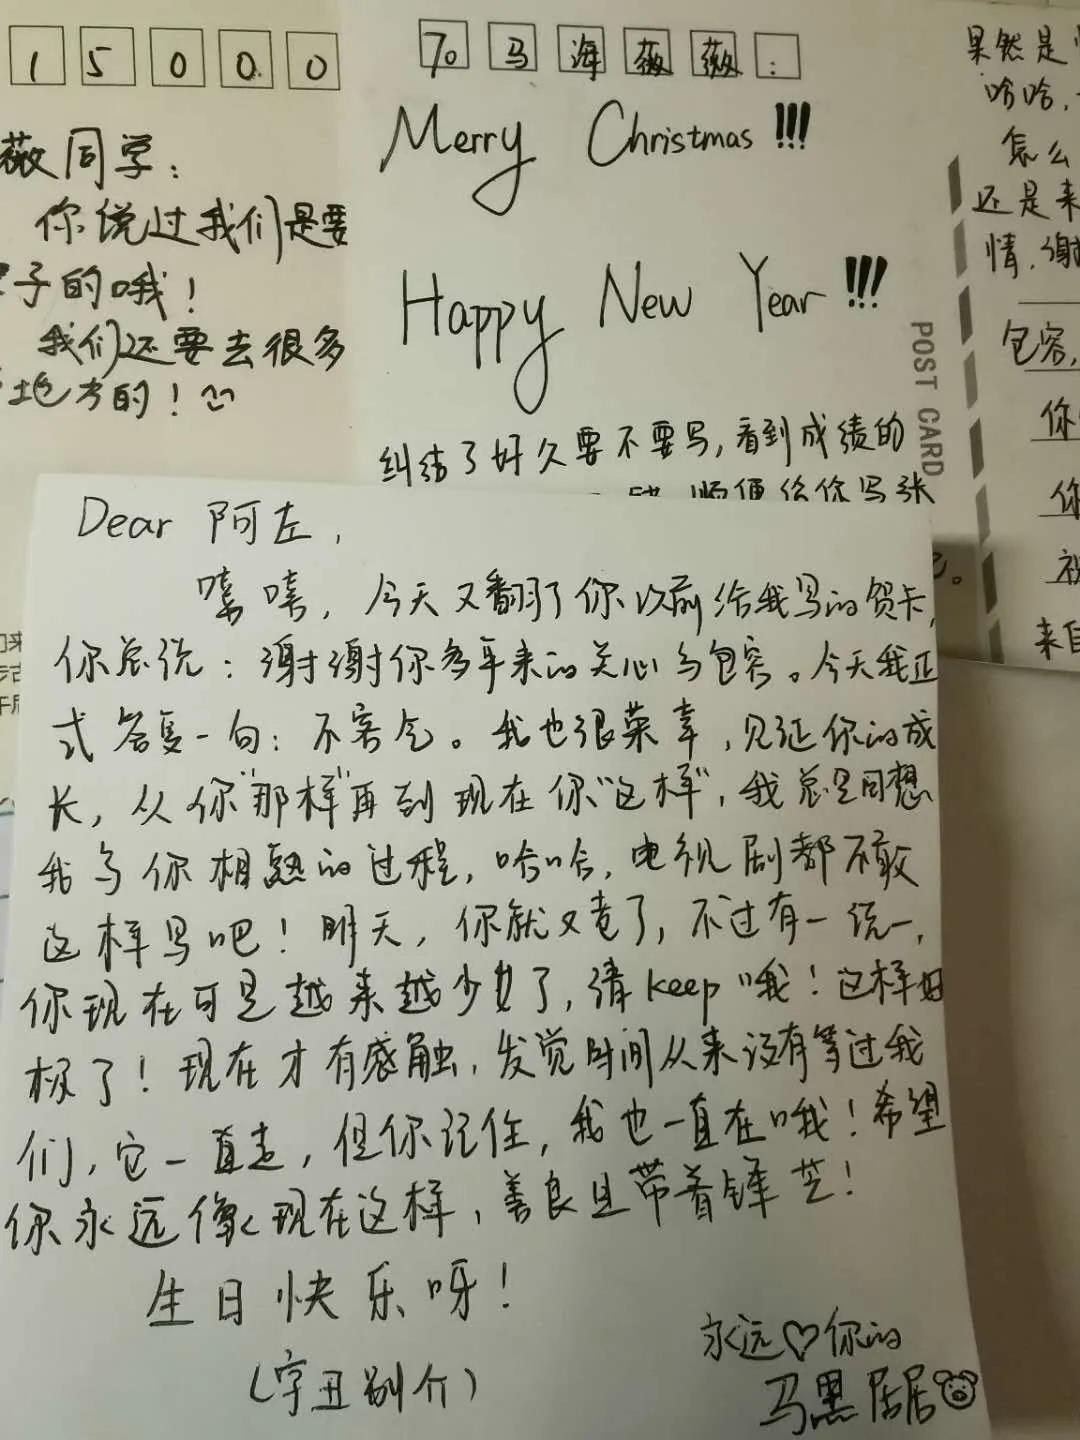 1 5 0 0 0
薇同学：
你说过我们是要
子的哦！
我们还要去很多
地方的！
To 马海薇薇：
Merry Christmas !!!
Happy New Year !!!
纠结了好久要不要写，看到成绩的
顺便给你写张
POST CARD
果然是
哈哈，
怎么
还是来
情，谢
包容，
你
你
祝
来自
Dear 阿左，
嘻嘻，今天又翻了你以前给我写的贺卡，
你总说：谢谢你多年来的关心与包容。今天我正
式答复一句：不客气。我也很荣幸，见证你的成
长，从你"那样"再到现在你"这样"，我总是回想
我与你相熟的过程，哈哈，电视剧都不敢
这样写吧！明天，你就又老了，不过有一说一，
你现在可是越来越少女了，请keep哦！这样好
极了！现在才有感触，发觉时间从来没有等过我
们，它一直走，但你记住，我也一直在哦！希望
你永远像现在这样，善良且带着锋芒！
生日快乐呀！
（字丑别介）
永远♡你的
马黑居居